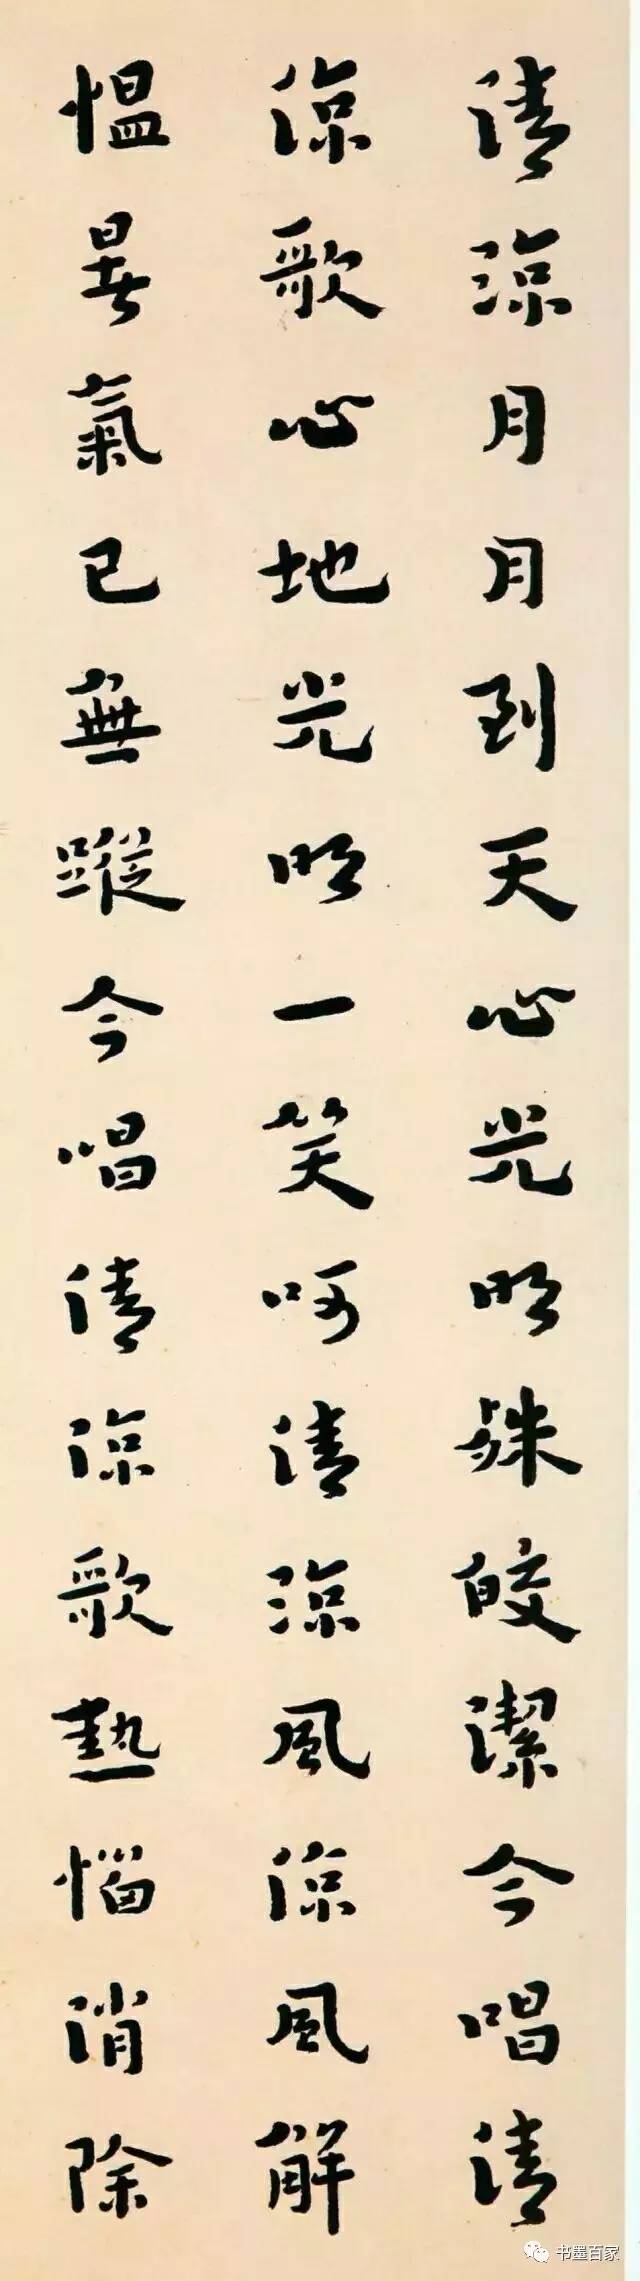 清涼月月到天心光明殊皎潔今唱清
涼歌心地光明一笑呵清涼風涼風解
愠暑氣已無蹤今唱清涼歌熱惱消除
书墨百家